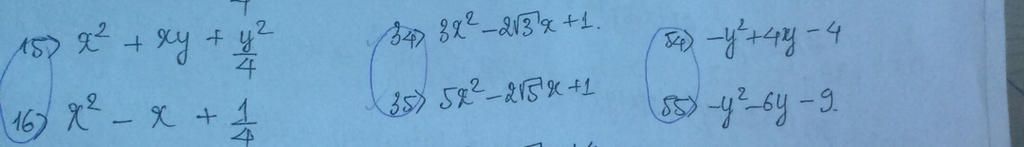 15) x² + xy + y²/4
16) x² - x + 1/4
34) 3x² - 2√3 x + 1.
35) 5x² - 2√5 x + 1
54) -y² + 4y - 4
55) -y² - 6y - 9.